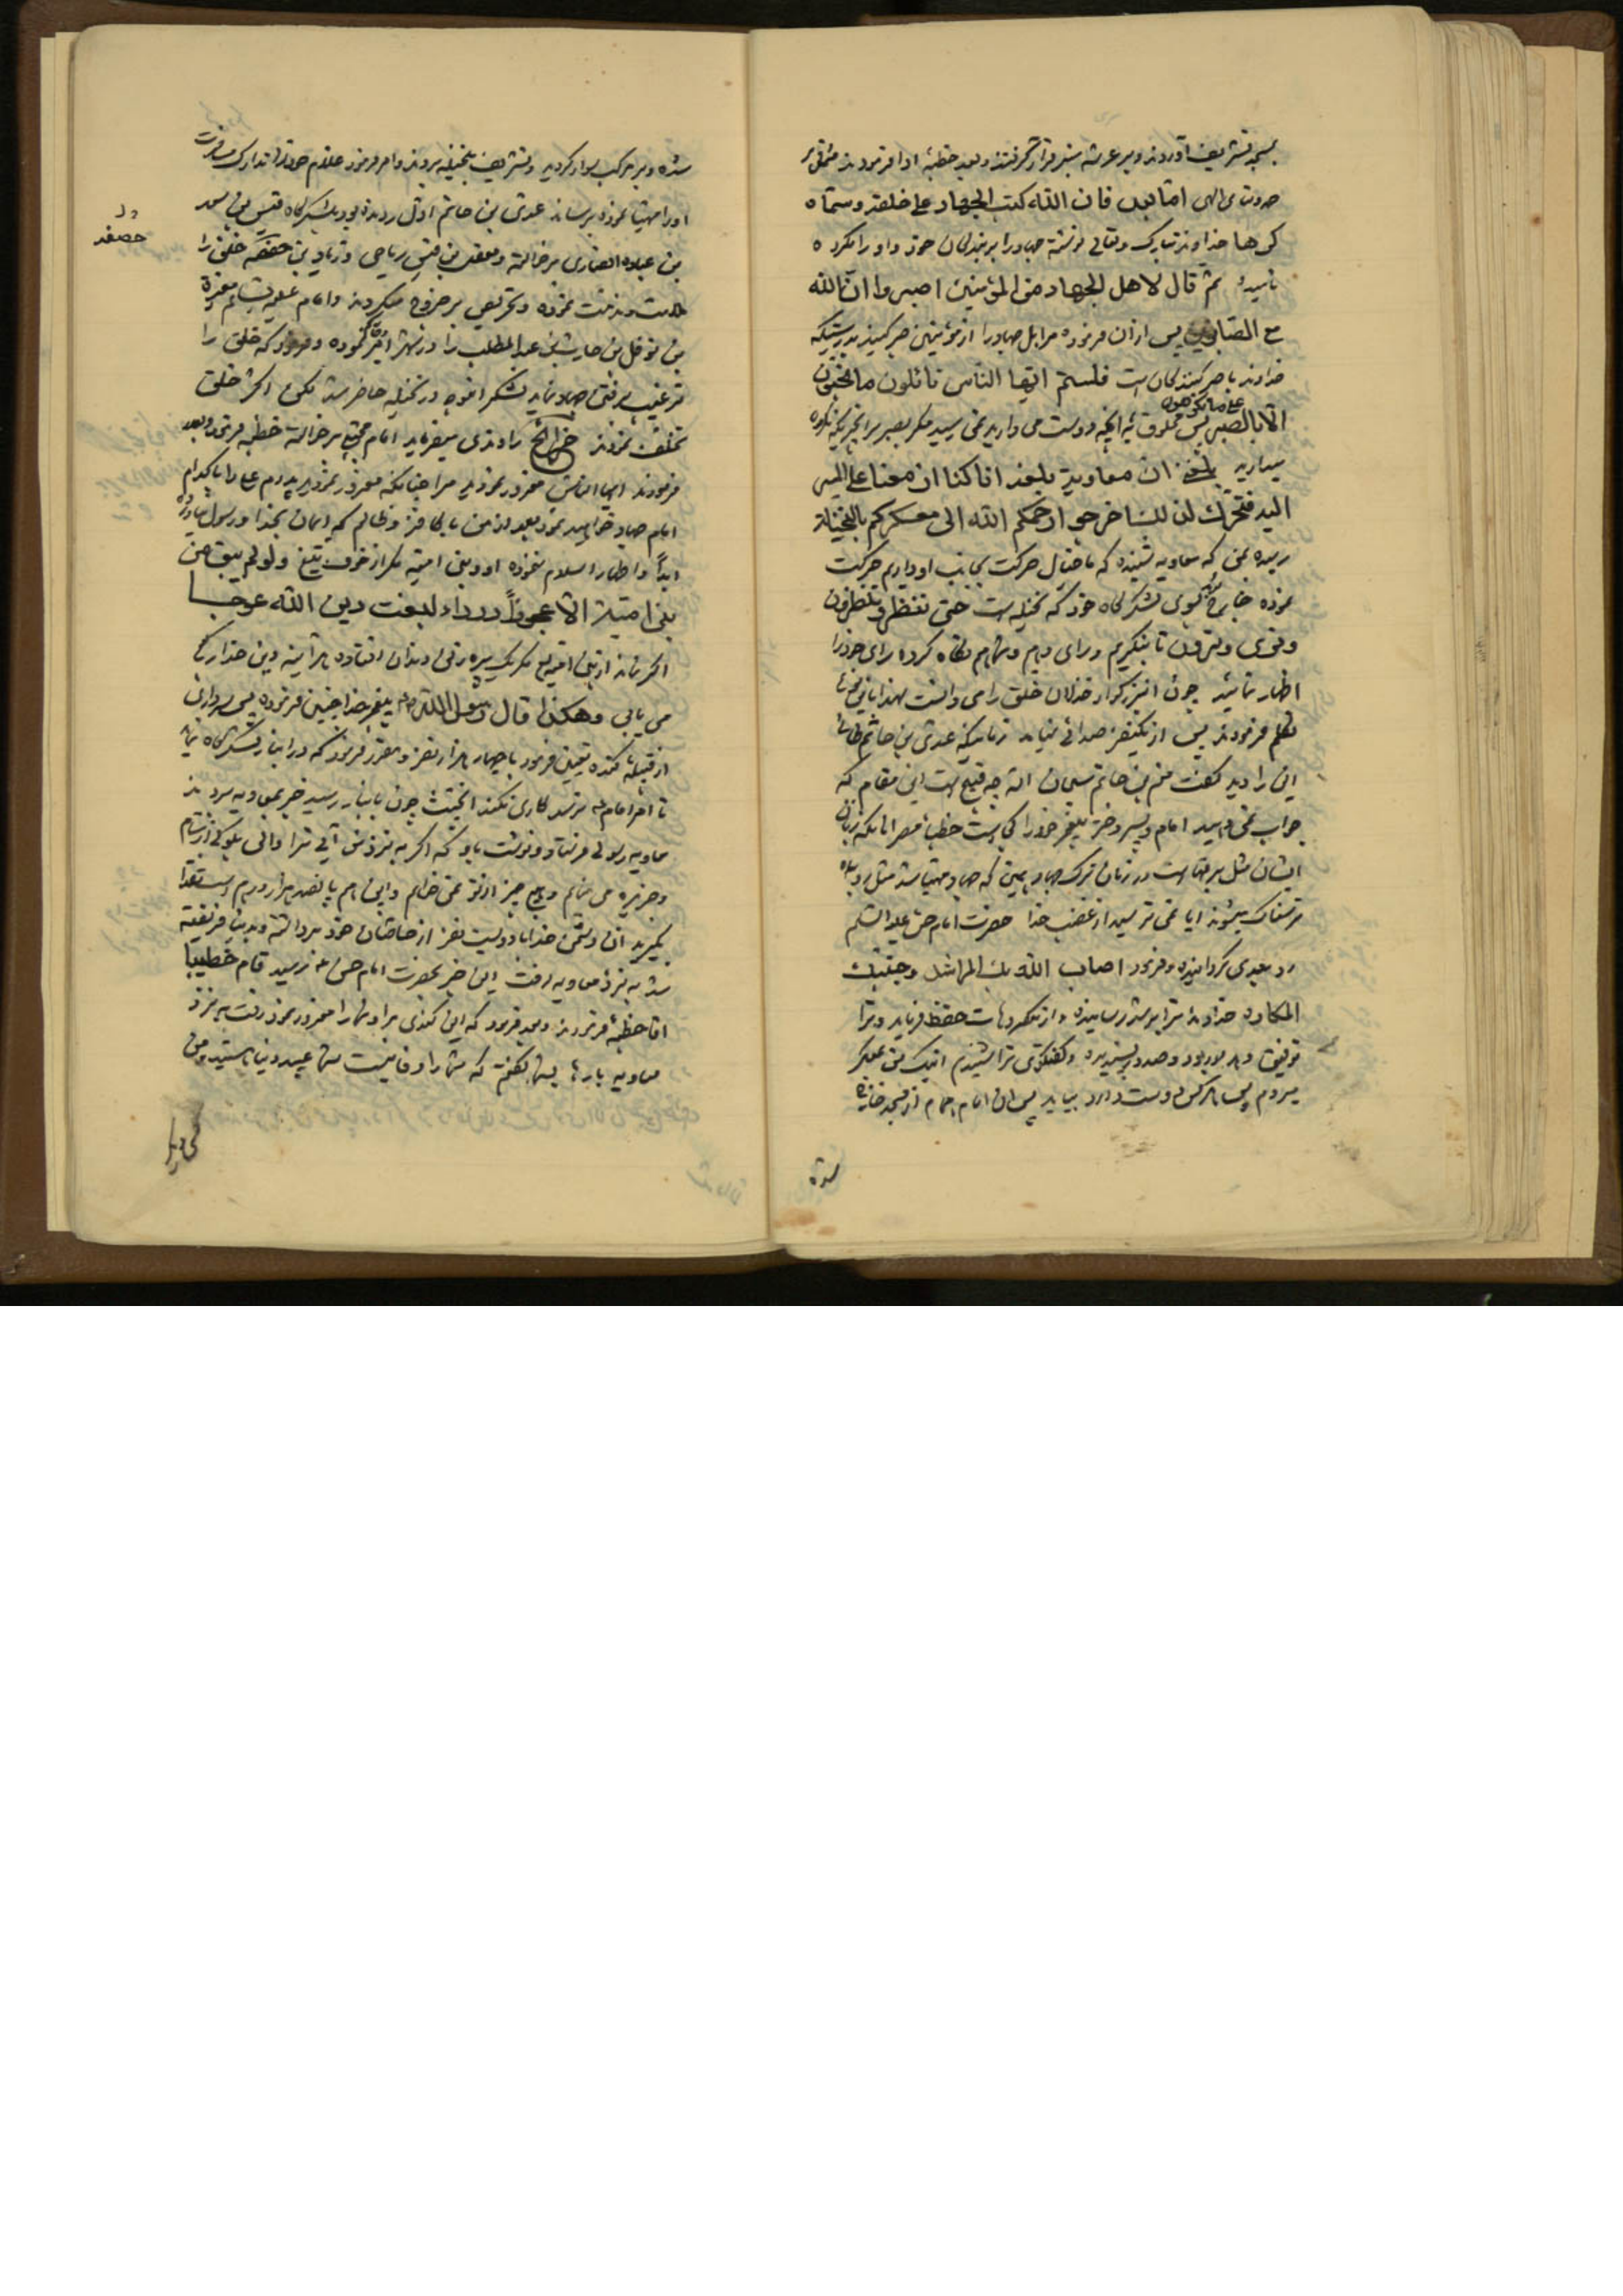 بمسجد تشریف آوردند و بر عرشه منبر قرار گرفتند و بعد خطبهٔ ادا فرمودند مشتمل بر
حمد و ثنای الهی اما بعد فان الله کتب الجهاد علی خلقه و سماه
کرها خداوند تبارک و تعالی نوشته جهاد را بر بندگان خود و او را مکروه
نامیده ثم قال لاهل الجهاد من المؤمنین اصبروا ان الله
مع الصابرین پس از آن فرموده مر اهل جهاد را از مؤمنین صبر کنید بدرستیکه
خداوند با صبر کنندگان است فلستم ایها الناس نائلون ما تحبون
الا بالصبر علی ما تکرهون پس آنچه دوست می دارید نمی رسید مگر بصبر بر آنچیزیکه مکروه
میدارید بلغنی ان معاویة بلغه انا کنا ازمعنا علی المسیر
الیه فتحرک لذلک اخرجوا رحمکم الله الی معسکرکم بالنخیلة
رسیده بمن که معاویه شنیده که ما خیال حرکت بجانب او داریم حرکت
نموده خارج شوید بسوی لشکرگاه خود که نخیله است حتی ننظر و تنظرون
و نری و ترون تا بنگریم و رای دهیم و شما هم نگاه کرده رای خود را
اظهار نمائید چون آنبزرگوار خذلان خلق را می دانست لهذا باین نحو
تکلم فرمودند پس از یکنفر صدائی نیامد زمانیکه عدی بن حاتم طائی
این را دید گفت منم بن حاتم سبحان الله چه قبیح است این مقام که
جواب نمی دهید امام و پسر دختر پیغمبر خود را کجایست خطباء مصر آنانکه زبان
ایشان مثل در زمان ترک جهاد همین که جهاد مهیا شد مثل روباه
ترسناک میشوند آیا نمی ترسید از غضب خدا حضرت امام حسن علیه السلام
رو بعدی گردانیده و فرمود اصاب الله بک المراشد و جنبک
المکاره خداوند ترا برشد رسانیده و از مکروهات حفظ فرماید و ترا
توفیق دهد بورود و صدور پسندیده و گفتگوی ترا شنیدم اینک من بمعسکر
میروم پس هر کس دوست دارد بیاید پس آن امام همام از مسجد خارج
شده
شده و بر مرکب سوار گردید و تشریف بنخیله بردند و امر فرمود غلام خود را تدارک مسافرت
او را مهیا نموده برساند عدی بن حاتم اول رونده بود بلشکرگاه قیس بن سعد
بن عباده انصاری برخاسته و معقل بن قیس ریاحی و زیاد بن حفصه خلق را
ملامت و مذمت نموده و تحریص بر خروج میکردند و امام علیه السلام مغیره
بن نوفل بن حارث بن عبد المطلب را در شهر امیر نموده و فرمود که خلق را
ترغیب برفتن جهاد نماید لشکر انبوه در نخیله حاضر شد لکن اکثر خلق
تخلف نمودند خرائج راوندی میفرماید امام مجتبی برخاست خطبه فرمود و بعد
فرمودند ایها الناس مغرور نمودید مرا چنانکه مغرور نمودید پدرم علی را با کدام
امام جهاد خواهید نمود بعد از من با کافر و ظالم که ایمان بخدا و رسول نیاورده
ابداً و اظهار اسلام ننموده او و بنی امیه مگر از خوف تیغ و لو لم یبق من
بنی امیة الا عجوزاً درداء لبغت دین الله عوجا
اگر نماند از بنی امیه مگر یک پیره زنی دندان افتاده هر آینه دین خدا را کج
می یابی و هکذا قال رسول الله پیغمبر خدا چنین فرموده پس سرداری
از قبیله کنده تعیین فرمود با چهار هزار نفر و مقرر فرمود که در انبار لشکرگاه نماید
تا امر امام نرسد کاری نکند چون بانبار رسید خبر بمعاویه بردند
معاویه رسولی فرستاد و نوشت باو که اگر به نزد من آئی ترا والی بلوکی از شام
و جزیره می نمایم و هیچ چیز از تو نمی خواهم و این هم پانصد هزار درهم است نقدا
بگیرید آن دشمن خدا با دویست نفر از خاصان خود برداشته و بدنیا فریفته
شد به نزد معاویه رفت این خبر بحضرت امام حسن رسید قام خطیبا
اما خطبه فرمودند و بعد فرمود که این کندی مرا و شما را مغرور نمود رفت به نزد
معاویه بارها بشما گفتم که شما را وفا نیست شما عبید دنیا هستید و من
حصفه